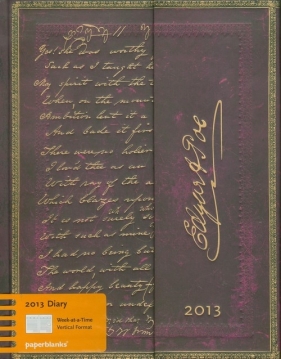 Yes! she was worthy
Such as I taught her
My spirit with the
When on the moun
Ambition lent it a
And bade it firs
There were no holier
I lov'd thee as an
With ray of the a
Which blazes upon
It is not surely s
With such as mine
I had no being bu
The world, with all
And happy beauty
under
Edgar A Poe
2013
2013 Diary
Week-at-a-Time
Vertical Format
paperblanks